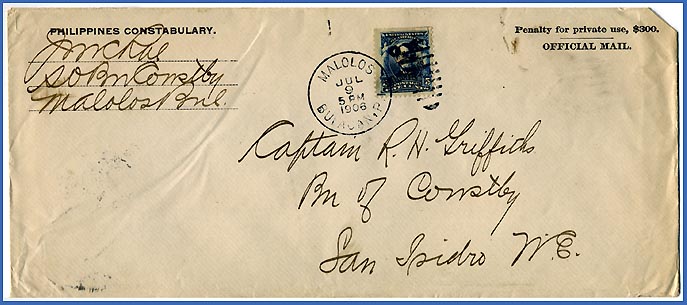 PHILIPPINES CONSTABULARY.
SO Bn Constby
Malolos Bul.
MALOLOS
JUL
9
5 PM
1906
BULACAN, P.I.
Penalty for private use, $300.
OFFICIAL MAIL.
Captain R. H. Griffiths
Bn of Constby
San Isidro N.E.